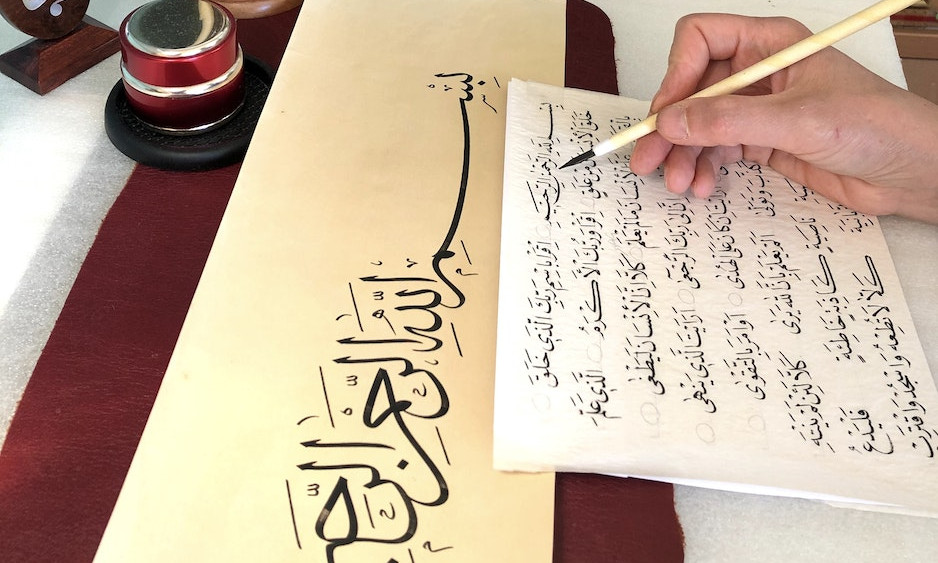 بِسْمِ اللَّهِ الرَّحْمَٰنِ الرَّحِيمِ
بِسْمِ اللَّهِ الرَّحْمَٰنِ الرَّحِيمِ اِقْرَأْ بِاسْمِ رَبِّكَ الَّذِي خَلَقَ
خَلَقَ الْإِنْسَانَ مِنْ عَلَقٍ اِقْرَأْ وَرَبُّكَ الْأَكْرَمُ الَّذِي عَلَّمَ
عَلَّمَ الْإِنْسَانَ مَا لَمْ يَعْلَمْ كَلَّا إِنَّ الْإِنْسَانَ لَيَطْغَى
إِنَّ إِلَى رَبِّكَ الرُّجْعَى أَرَأَيْتَ الَّذِي يَنْهَى
أَرَأَيْتَ إِنْ كَانَ عَلَى الْهُدَى أَوْ أَمَرَ بِالتَّقْوَى
كَذَّبَ وَتَوَلَّى أَلَمْ يَعْلَمْ بِأَنَّ اللَّهَ يَرَى كَلَّا لَئِنْ لَمْ يَنْتَهِ
نَاصِيَةٍ كَاذِبَةٍ خَاطِئَةٍ فَلْيَدْعُ
كَلَّا لَا تُطِعْهُ وَاسْجُدْ وَاقْتَرِبْ